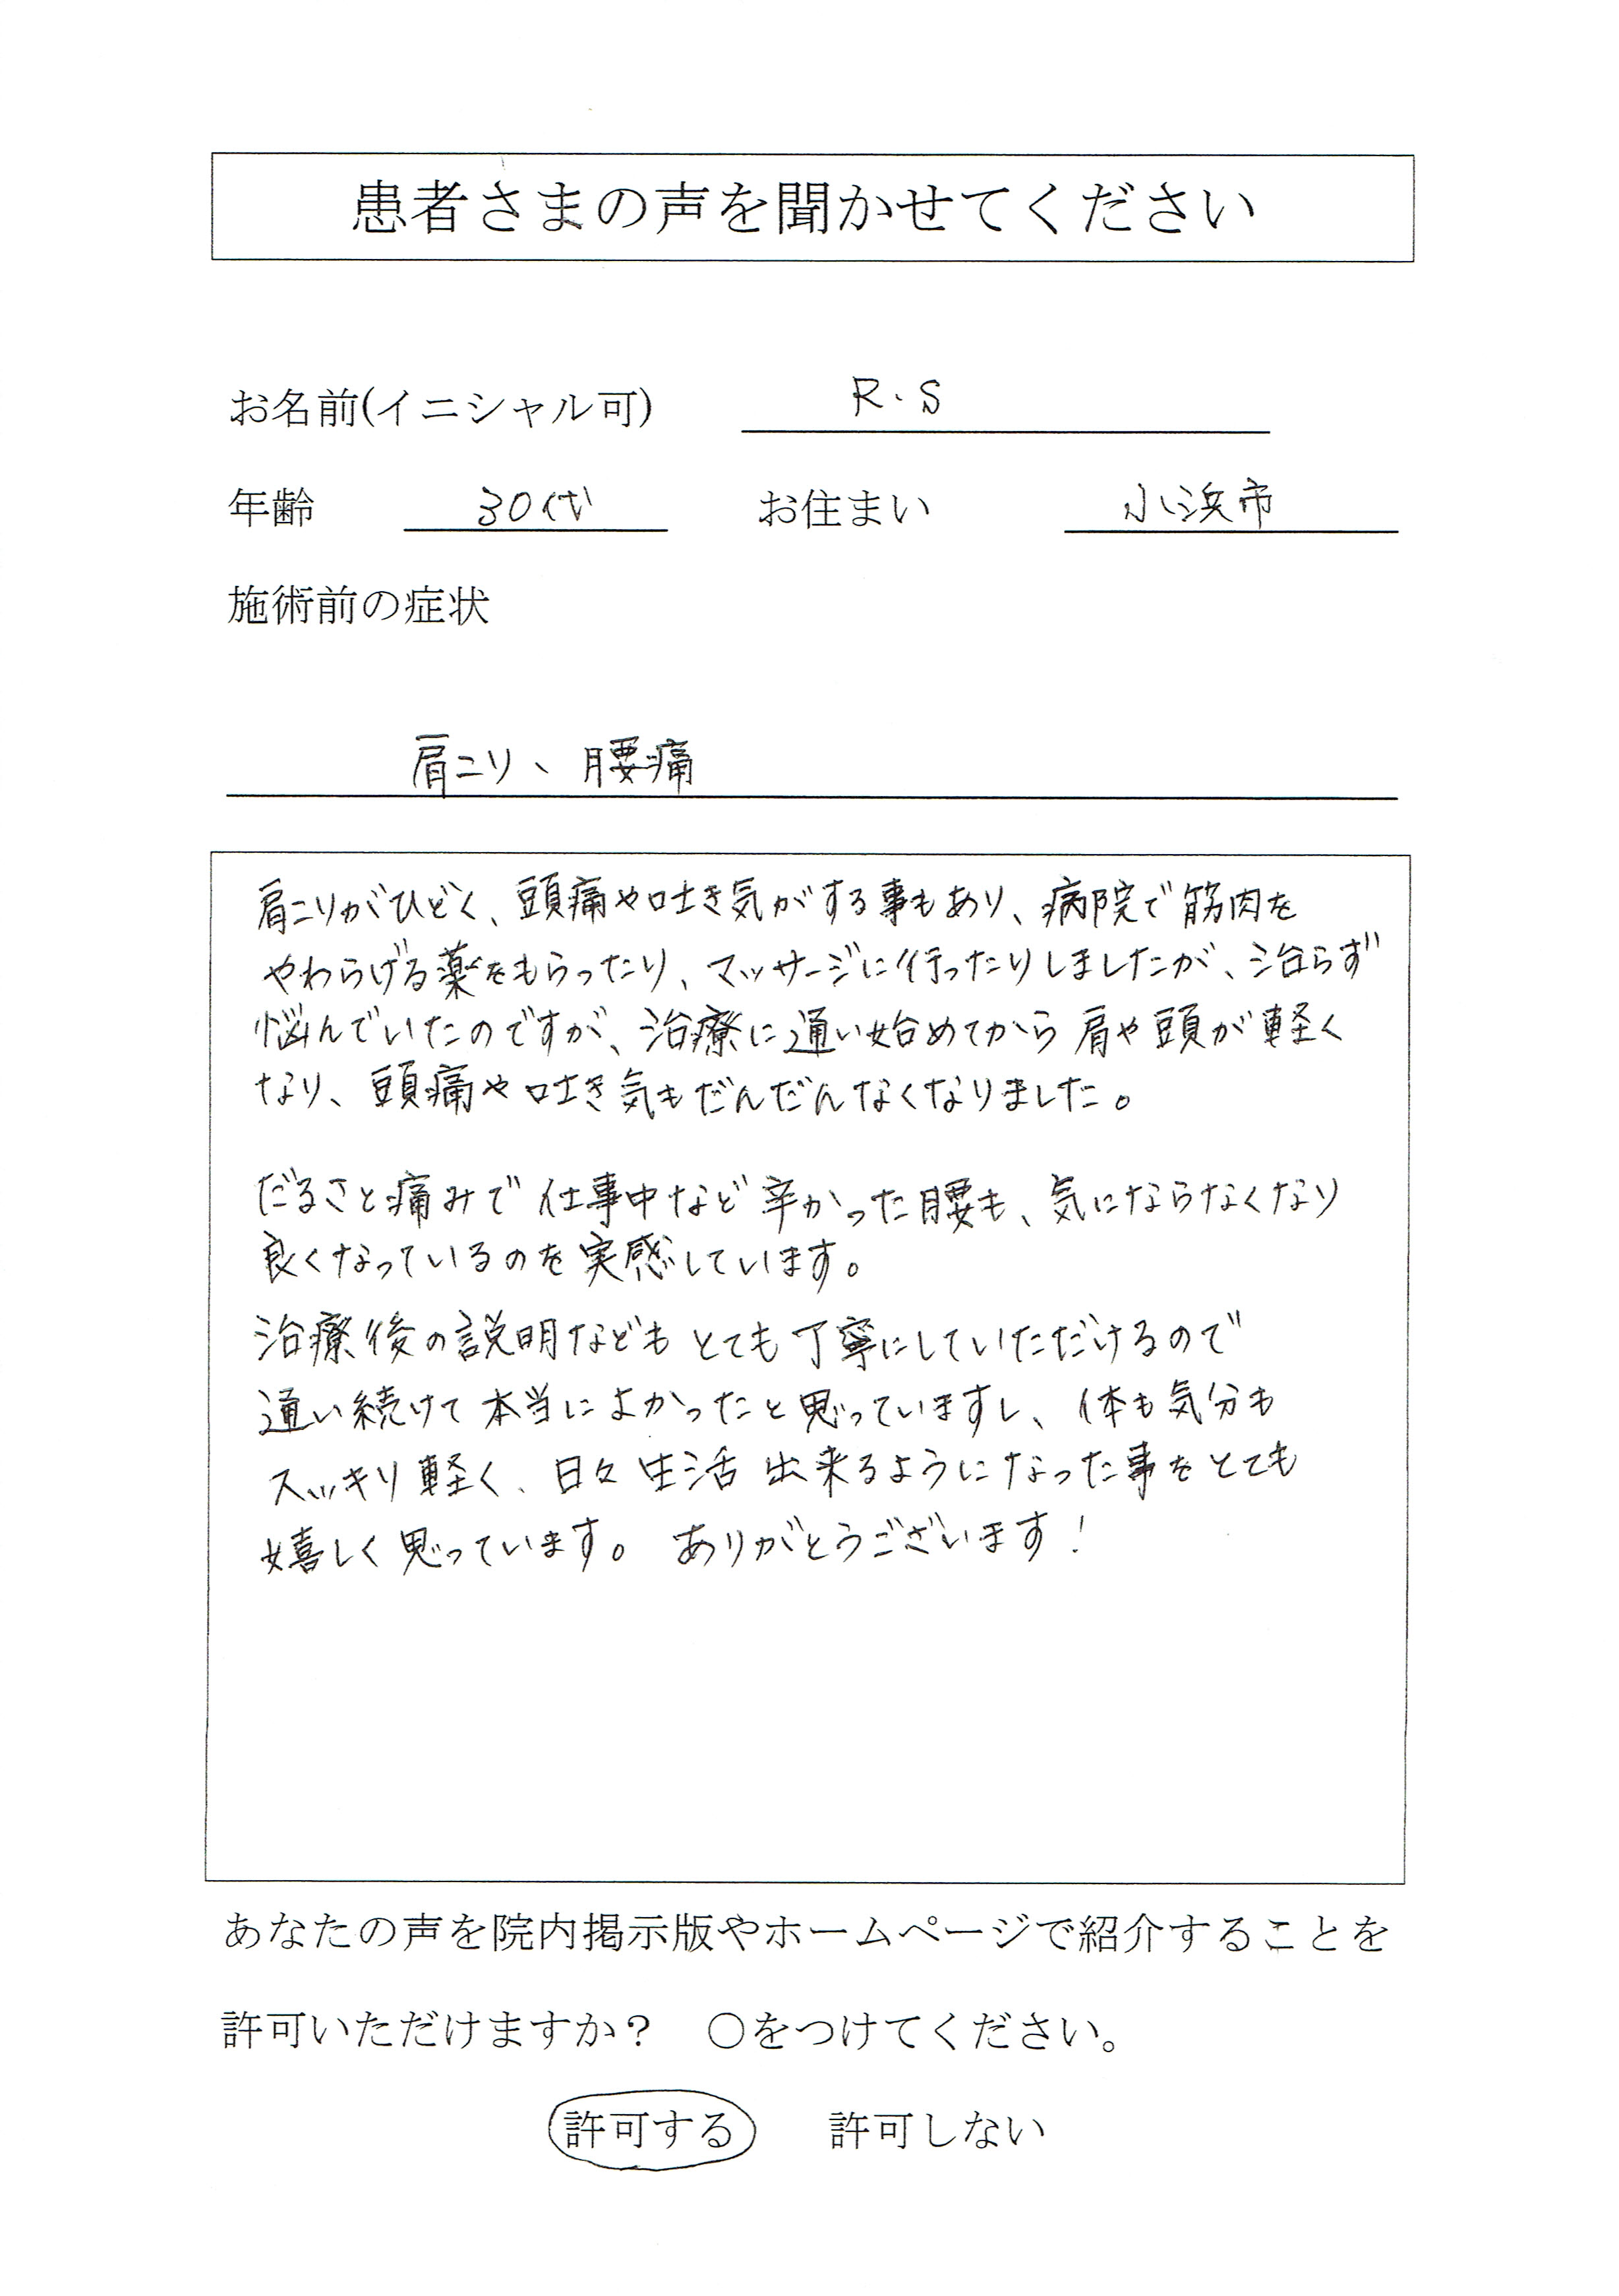 患者さまの声を聞かせてください
お名前(イニシャル可) R.S
年齢 30代 お住まい 小浜市
施術前の症状
肩こり、腰痛
肩こりがひどく、頭痛や吐き気がする事もあり、病院で筋肉を
やわらげる薬をもらったり、マッサージに行ったりしましたが、治らず
悩んでいたのですが、治療に通い始めてから肩や頭が軽く
なり、頭痛や吐き気もだんだんなくなりました。
だるさと痛みで仕事中など辛かった腰も、気にならなくなり
良くなっているのを実感しています。
治療後の説明などもとても丁寧にしていただけるので
通い続けて本当によかったと思っていますし、体も気分も
スッキリ軽く、日々生活出来るようになった事をとても
嬉しく思っています。ありがとうございます!
あなたの声を院内掲示版やホームページで紹介することを
許可いただけますか? ○をつけてください。
許可する 許可しない